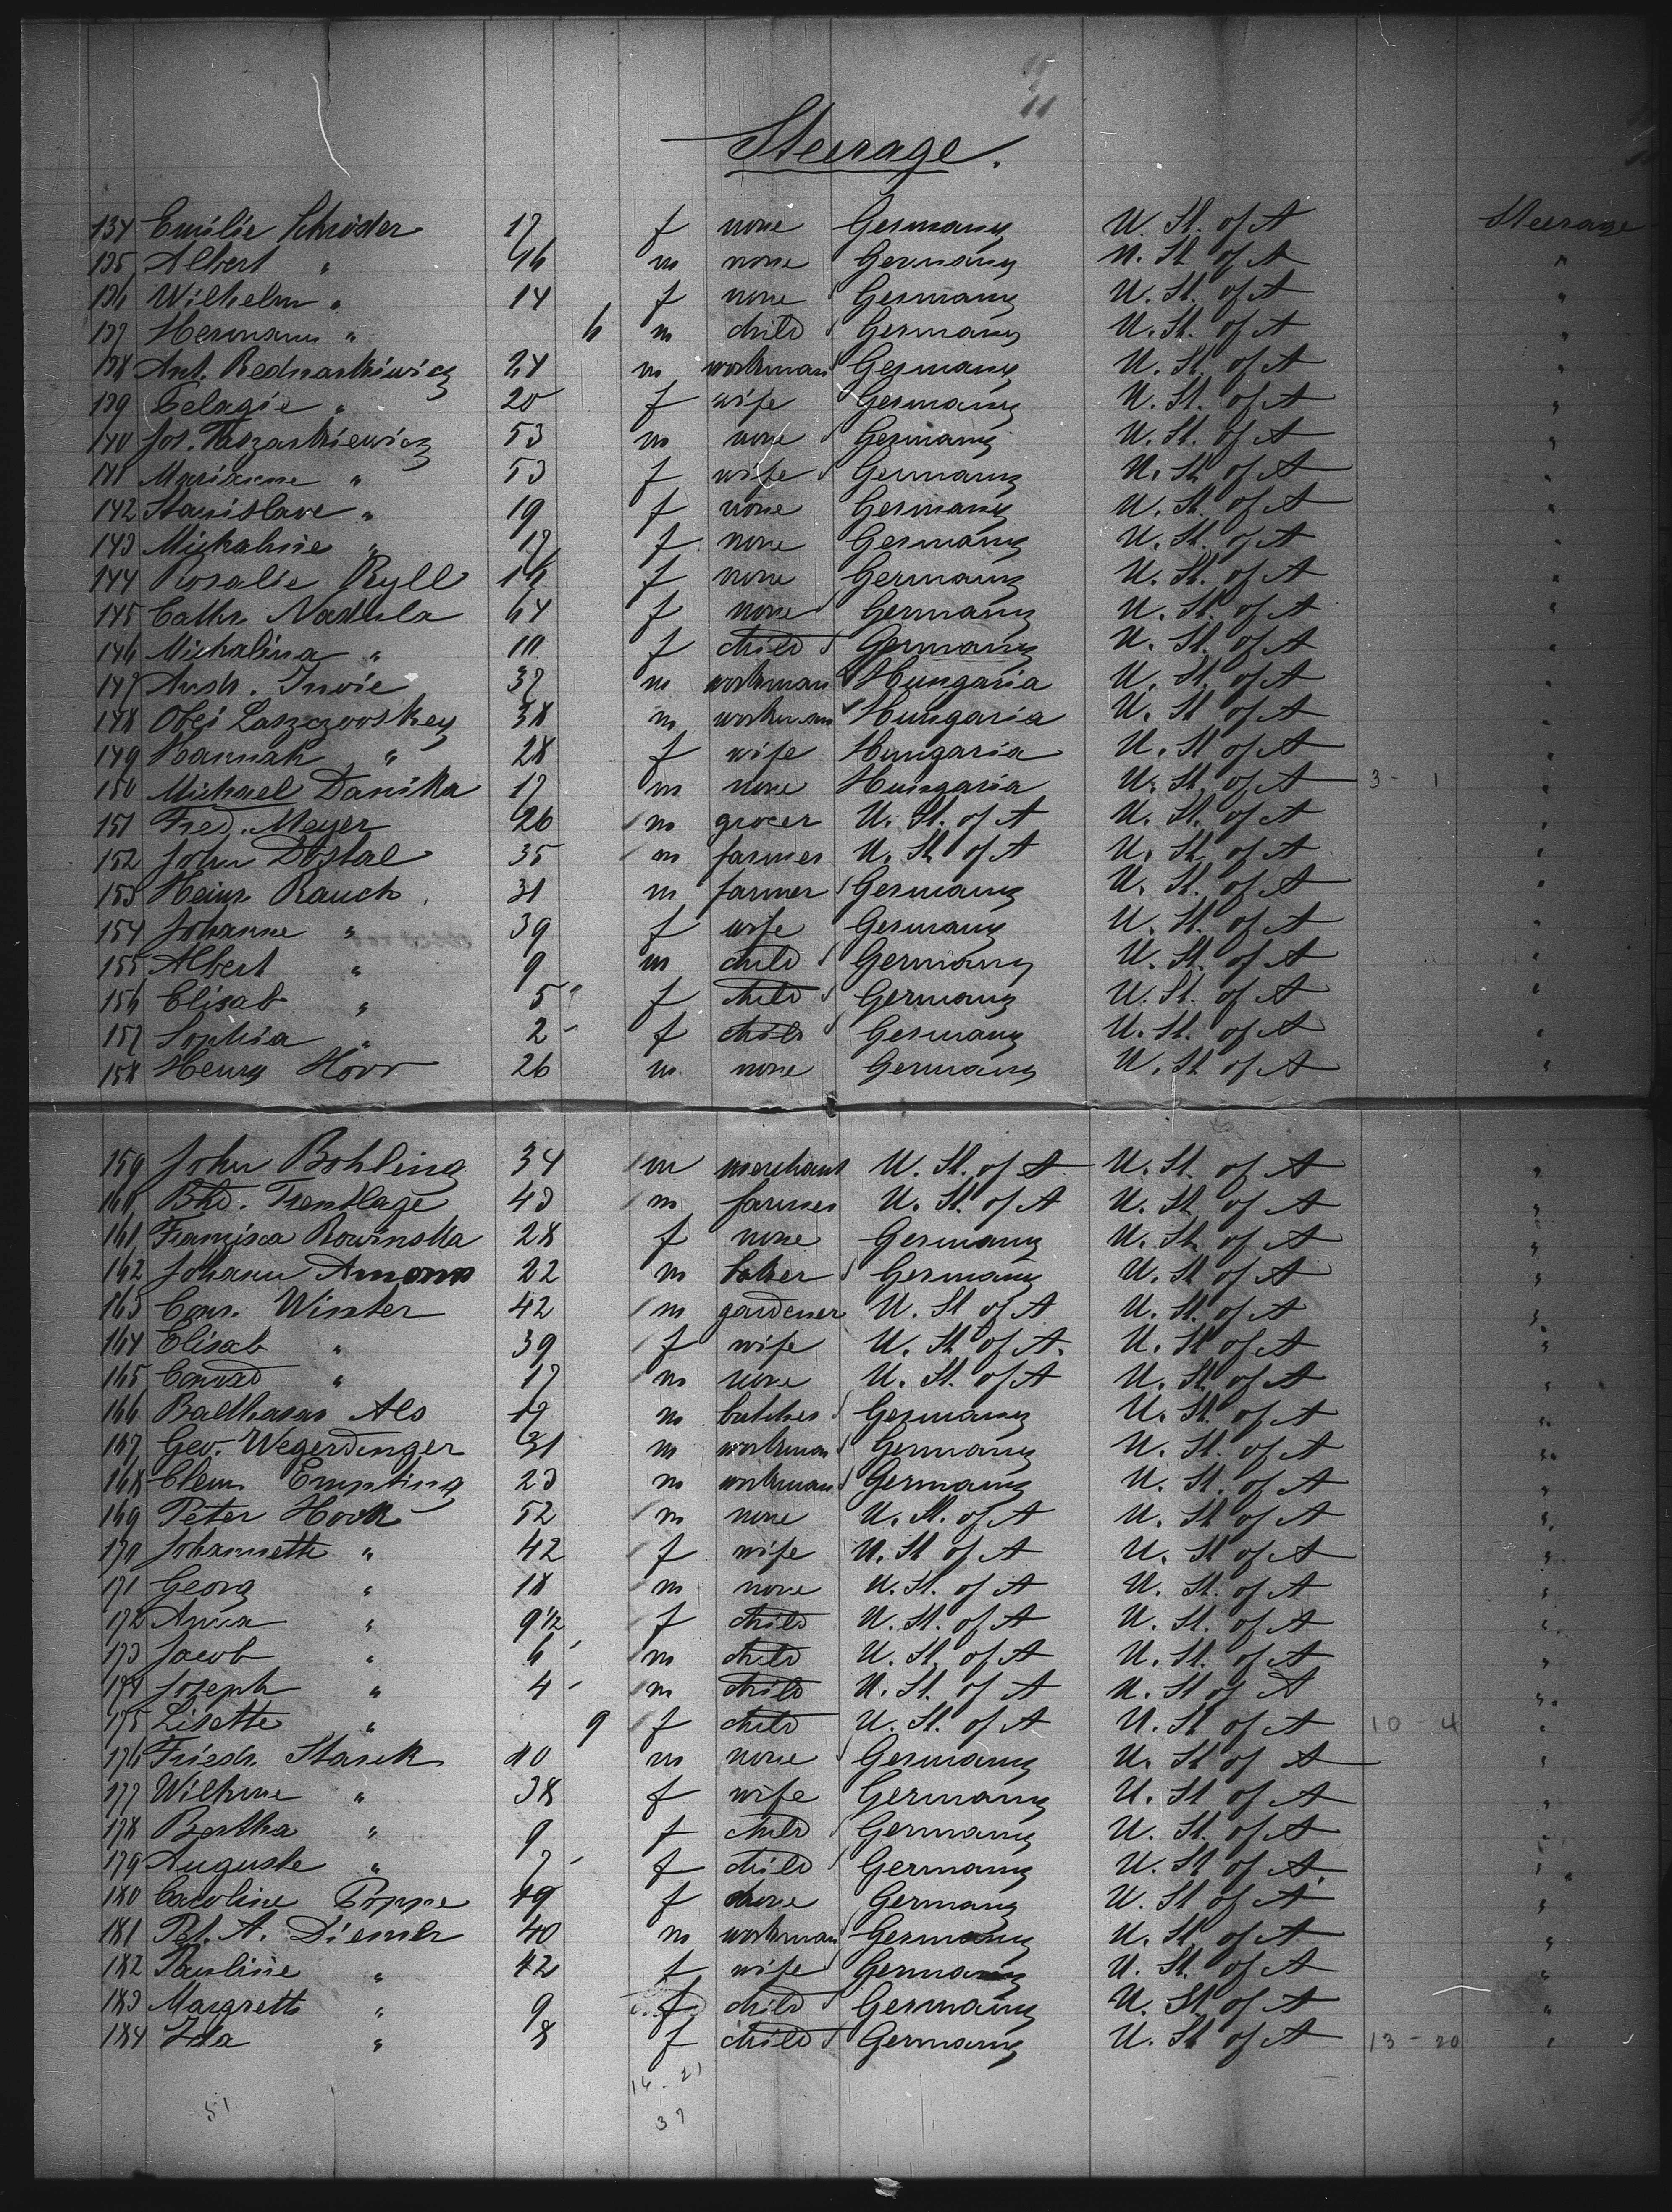 11
Steerage.
134 Emilie Schröder 17 f none Germany U. St. of A Steerage
135 Albert " 46 m none Germany U. St. of A "
136 Wilhelm " 14 f none Germany U. St. of A "
137 Hermann " 6 m child Germany U. St. of A "
138 Ant. Bednarkiwicz 24 m workman Germany U. St. of A "
139 Pelagie " 20 f wife Germany U. St. of A "
140 Jos. 53 m none Germany U. St. of A "
141 Marianne " 53 f wife Germany U. St. of A "
142 Stanislave " 19 f none Germany U. St. of A "
143 Michaline " 17 f none Germany U. St. of A "
144 Rosalie Ryll f none Germany U. St. of A "
145 Cathr. 64 f none Germany U. St. of A "
146 Michalina " f child Germany U. St. of A "
147 Andr. 37 m workman Hungaria U. St. of A "
148 38 m workman Hungaria U. St. of A "
149 Hannah " 28 f wife Hungaria U. St. of A "
150 Michael Danika 17 m none Hungaria U. St. of A 3 - 1 "
151 Fred. Meyer 26 m grocer U. St. of A U. St. of A "
152 John Dostal 35 m farmer U. St. of A U. St. of A "
153 Heinr. Rauch 31 m farmer Germany U. St. of A "
154 Johanne " 39 f wife Germany U. St. of A "
155 Albert " 9 m child Germany U. St. of A "
156 Elisab " 5 f child Germany U. St. of A "
157 Sophia " 2 f child Germany U. St. of A "
158 Henry Horr 26 m none Germany U. St. of A "
159 John Bohling 34 m merchant U. St. of A U. St. of A "
160 Bhd. Trentlage 43 m farmer U. St. of A U. St. of A "
161 Franzisca Rowinska 28 f none Germany U. St. of A "
162 Johann 22 m baker Germany U. St. of A "
163 Conr. Winter 42 m gardener U. St. of A U. St. of A "
164 Elisab " 39 f wife U. St. of A. U. St. of A "
165 Conrad " 17 m none U. St. of A U. St. of A "
166 Balthasar Als m butcher Germany U. St. of A "
167 Geo. Wegerdinger 31 m workman Germany U. St. of A "
168 Clem. Empting 23 m workman Germany U. St. of A "
169 Peter Hook 52 m none U. St. of A U. St. of A "
170 Johannette " 42 f wife U. St. of A U. St. of A "
171 Georg " 18 m none U. St. of A U. St. of A "
172 Anna " 9 1/2 f child U. St. of A U. St. of A "
173 Jacob " 6 m child U. St. of A U. St. of A "
174 Joseph " 4 m child U. St. of A U. St. of A "
175 Lisette " 9 f child U. St. of A U. St. of A 10 - 4 "
176 Friedr. Starck 40 m none Germany U. St. of A "
177 Wilhme " 38 f wife Germany U. St. of A "
178 Bertha " 9 f child Germany U. St. of A "
179 Auguste " 7 f child Germany U. St. of A "
180 Caroline Poppe 49 f none Germany U. St. of A "
181 Pet. A. Diemer 40 m workman Germany U. St. of A "
182 Pauline " 42 f wife Germany U. St. of A "
183 Margreth " 9 f child Germany U. St. of A "
184 Ida " 8 f child Germany U. St. of A 13 - 20 "
51
37